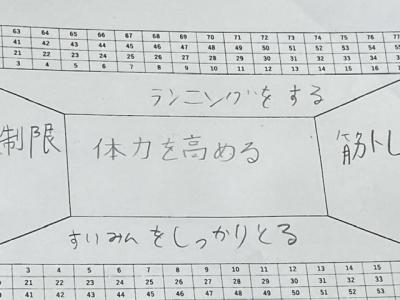 63 64 65 66 67 68 69 70 71 72 73 74 75 76 77
41 42 43 44 45 46 47 48 49 50 51 52 53 54
21 22 23 24 25 26 27 28 29 30 31 32 33 34
3 4 5 6 7 8 9 10 11 12 13 14 15 16
ランニングをする
制限 体力を高める 筋トレ
すいみんをしっかりとる
3 4 5 6 7 8 9 10 11 12 13 14 15
21 22 23 24 25 26 27 28 29 30 31 32 33
41 42 43 44 45 46 47 48 49 50 51 52 53